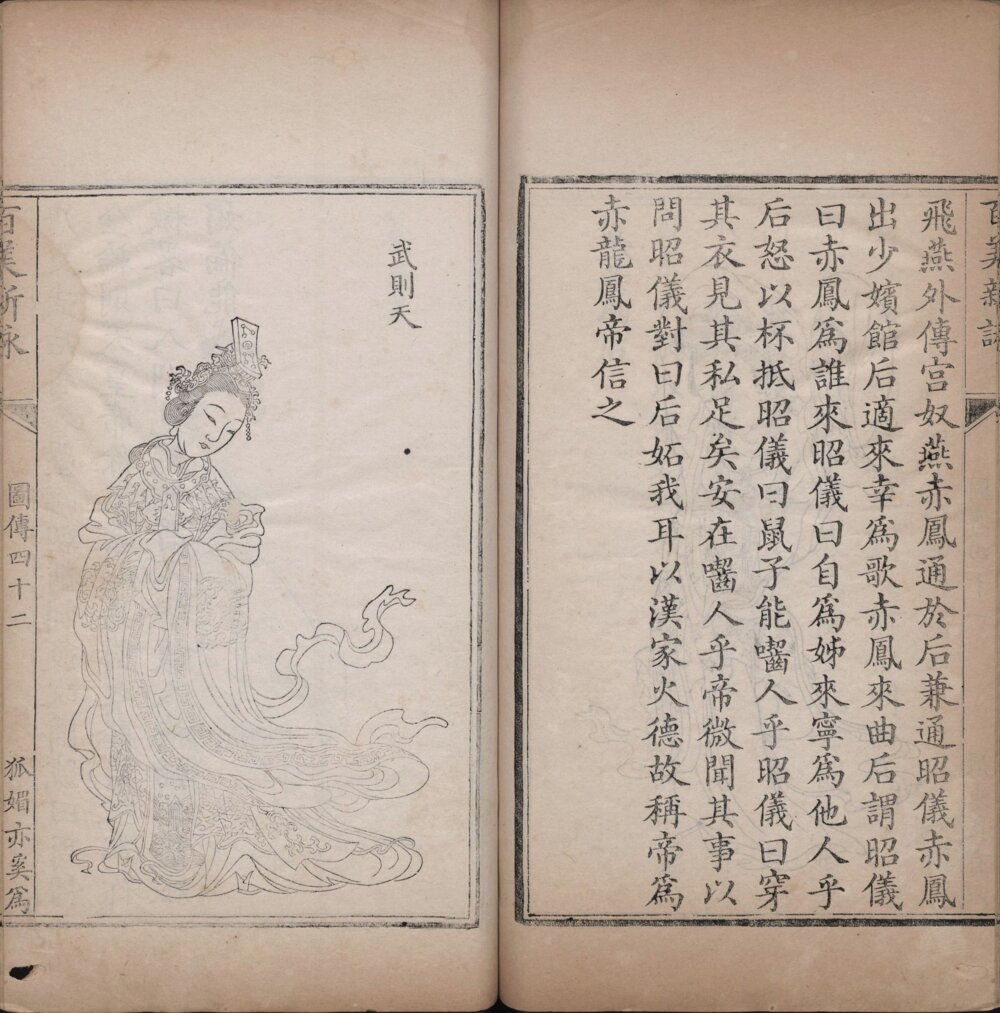 百美新詠
飛燕外傳宮奴燕赤鳳通於后兼通昭儀赤鳳
出少嬪館后適來幸爲歌赤鳳來曲后謂昭儀
曰赤鳳爲誰來昭儀曰自爲姊來寧爲他人乎
后怒以杯抵昭儀曰鼠子能囓人乎昭儀曰穿
其衣見其私足矣安在囓人乎帝微聞其事以
問昭儀對曰后妬我耳以漢家火德故稱帝爲
赤龍鳳帝信之
武則天
百美新詠
圖傳四十二
狐媚亦奚爲